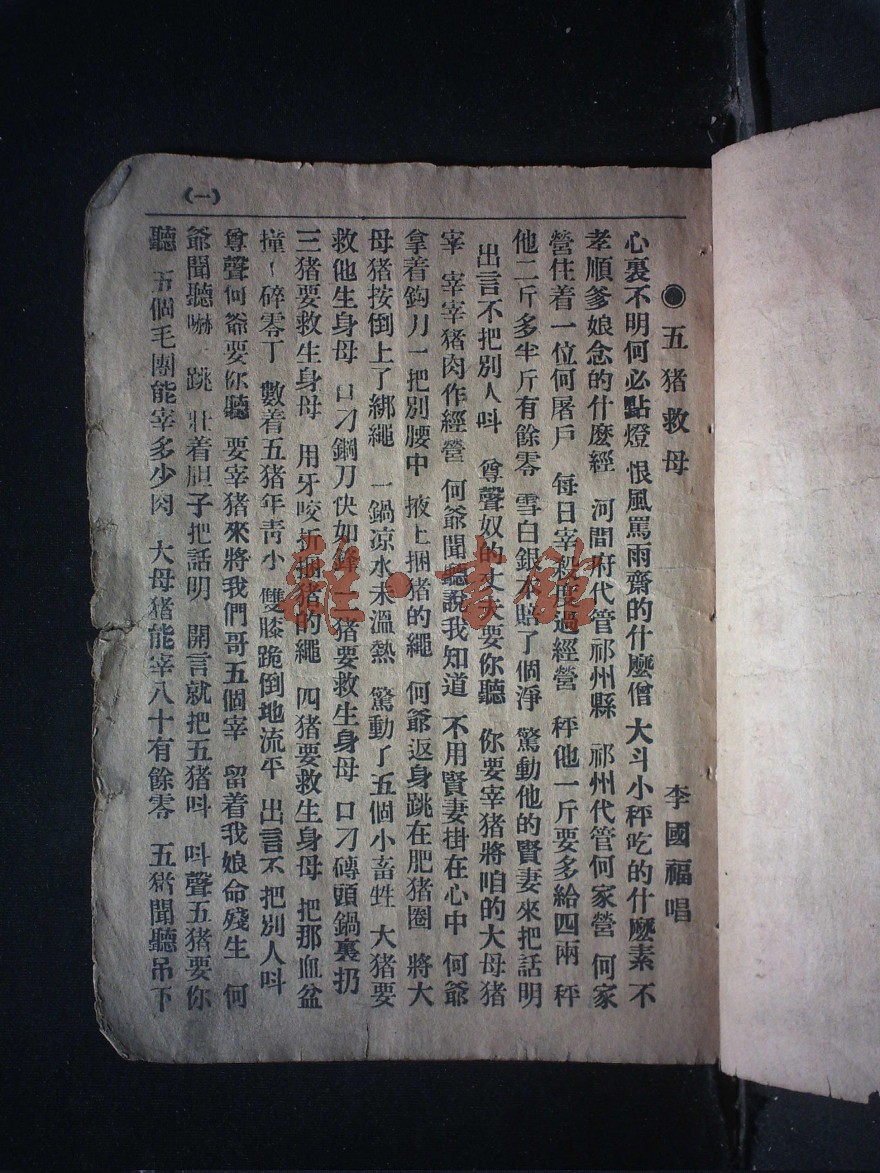 ●五猪救母　李國福唱
心裏不明何必點燈 恨風罵雨齋的什麼僧 大斗小秤吃的什麼素 不
孝順爹娘念的什麼經 河間府代管祁州縣 祁州代管何家營 何家
營住着一位何屠戶 每日宰 過經營 秤他一斤要多給四兩 秤
他二斤多半斤有餘零 雪白銀 賠了個淨 驚動他的賢妻來把話明
出言不把別人呌 尊聲奴的丈夫要你聽 你要宰猪將咱的大母猪
宰 宰宰猪肉作經營 何爺聞聽說我知道 不用賢妻掛在心中 何爺
拿着鈎刀一把別腰中 掖上捆猪的繩 何爺返身跳在肥猪圈 將大
母猪按倒上了綁繩 一鍋凉水未溫熱 驚動了五個小畜牲 大猪要
救他生身母 口刁鋼刀快如鋒 猪要救生身母 口刁磚頭鍋裏扔
三猪要救生身母 用牙咬折捆猪的繩 四猪要救生身母 把那血盆
撞 碎零丁 數着五猪年靑小 雙膝跪倒地流平 出言不把別人呌
尊聲何爺要你聽 要宰猪來將我們哥五個宰 留着我娘命殘生 何
爺聞聽嚇 跳 壯着胆子把話明 開言就把五猪呌 呌聲五猪要你
聽 五個毛團能宰多少肉 大母猪能宰八十有餘零 五猪聞聽吊下
（一）
雜·書館